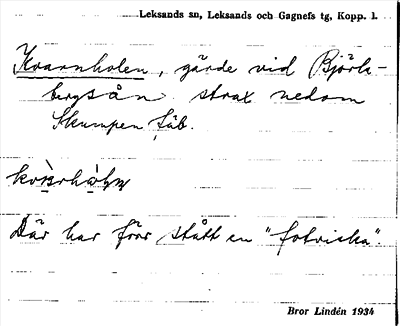 Leksands sn, Leksands och Gagnefs tg, Kopp. l.
Kvarnholen, gärde vid Björk-
bergsån strax nedom
Skumpen, fäb.
Där har förr stått en "fotviska".
Bror Lindén 1934